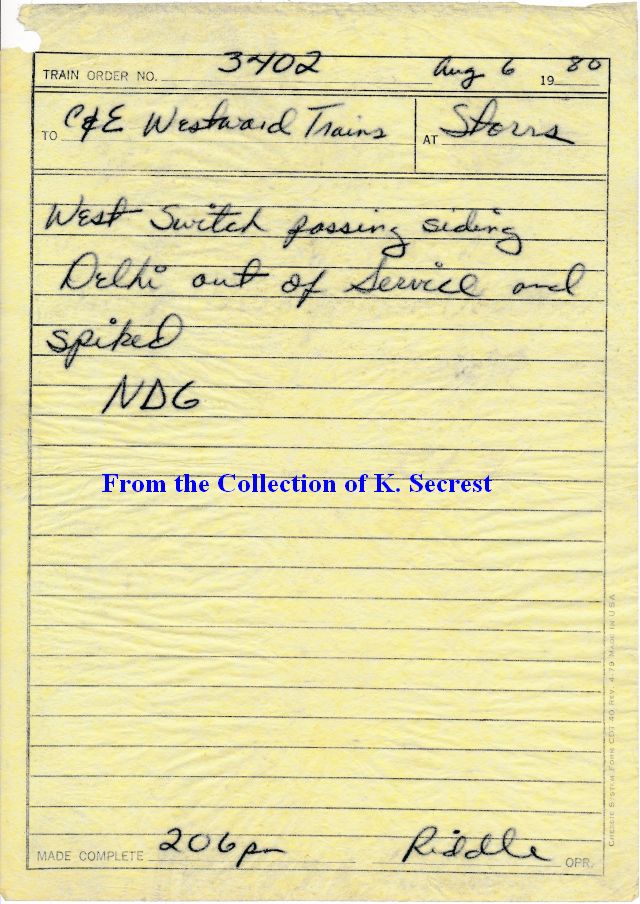 TRAIN ORDER NO. 3402 Aug 6 19 80
TO C&E Westward Trains AT Storrs
West Switch passing siding
Delhi out of Service and
spiked
NDG
From the Collection of K. Secrest
MADE COMPLETE 206pm Riddle OPR.
CHESSIE SYSTEM FORM CDT 40 REV. 4-79 MADE IN USA